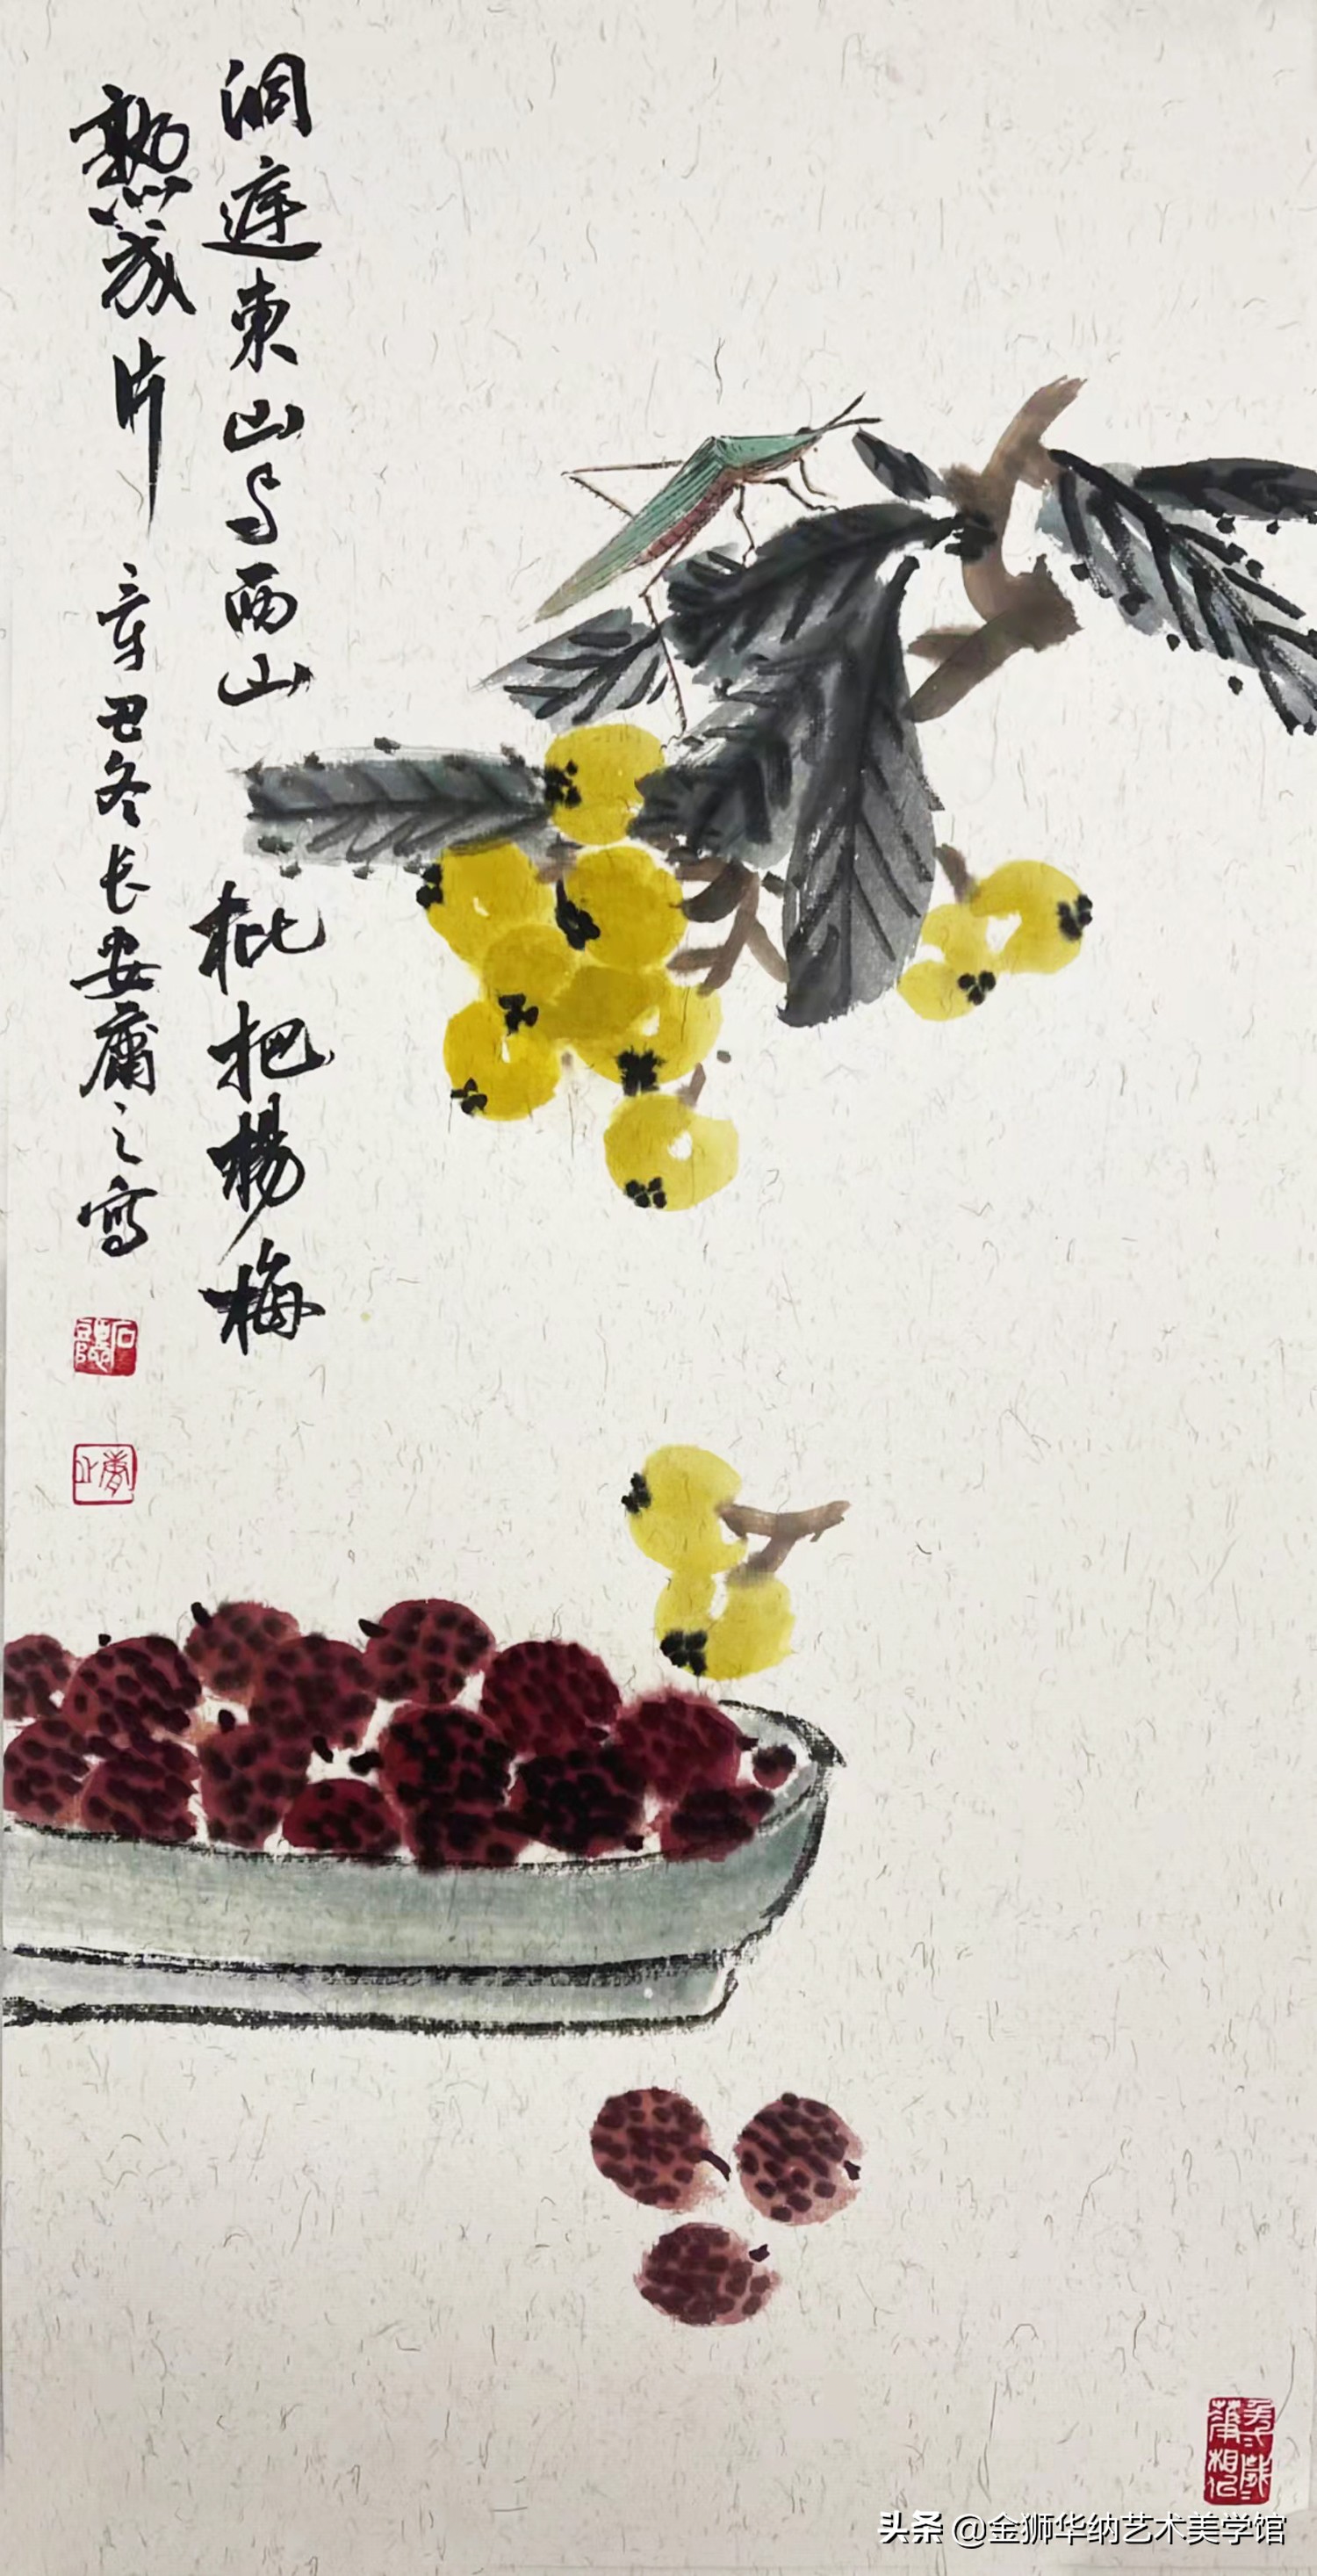 洞庭東山与西山 枇把楊梅
熟成片 辛丑冬长安庸之寫
头条 @金狮华纳艺术美学馆